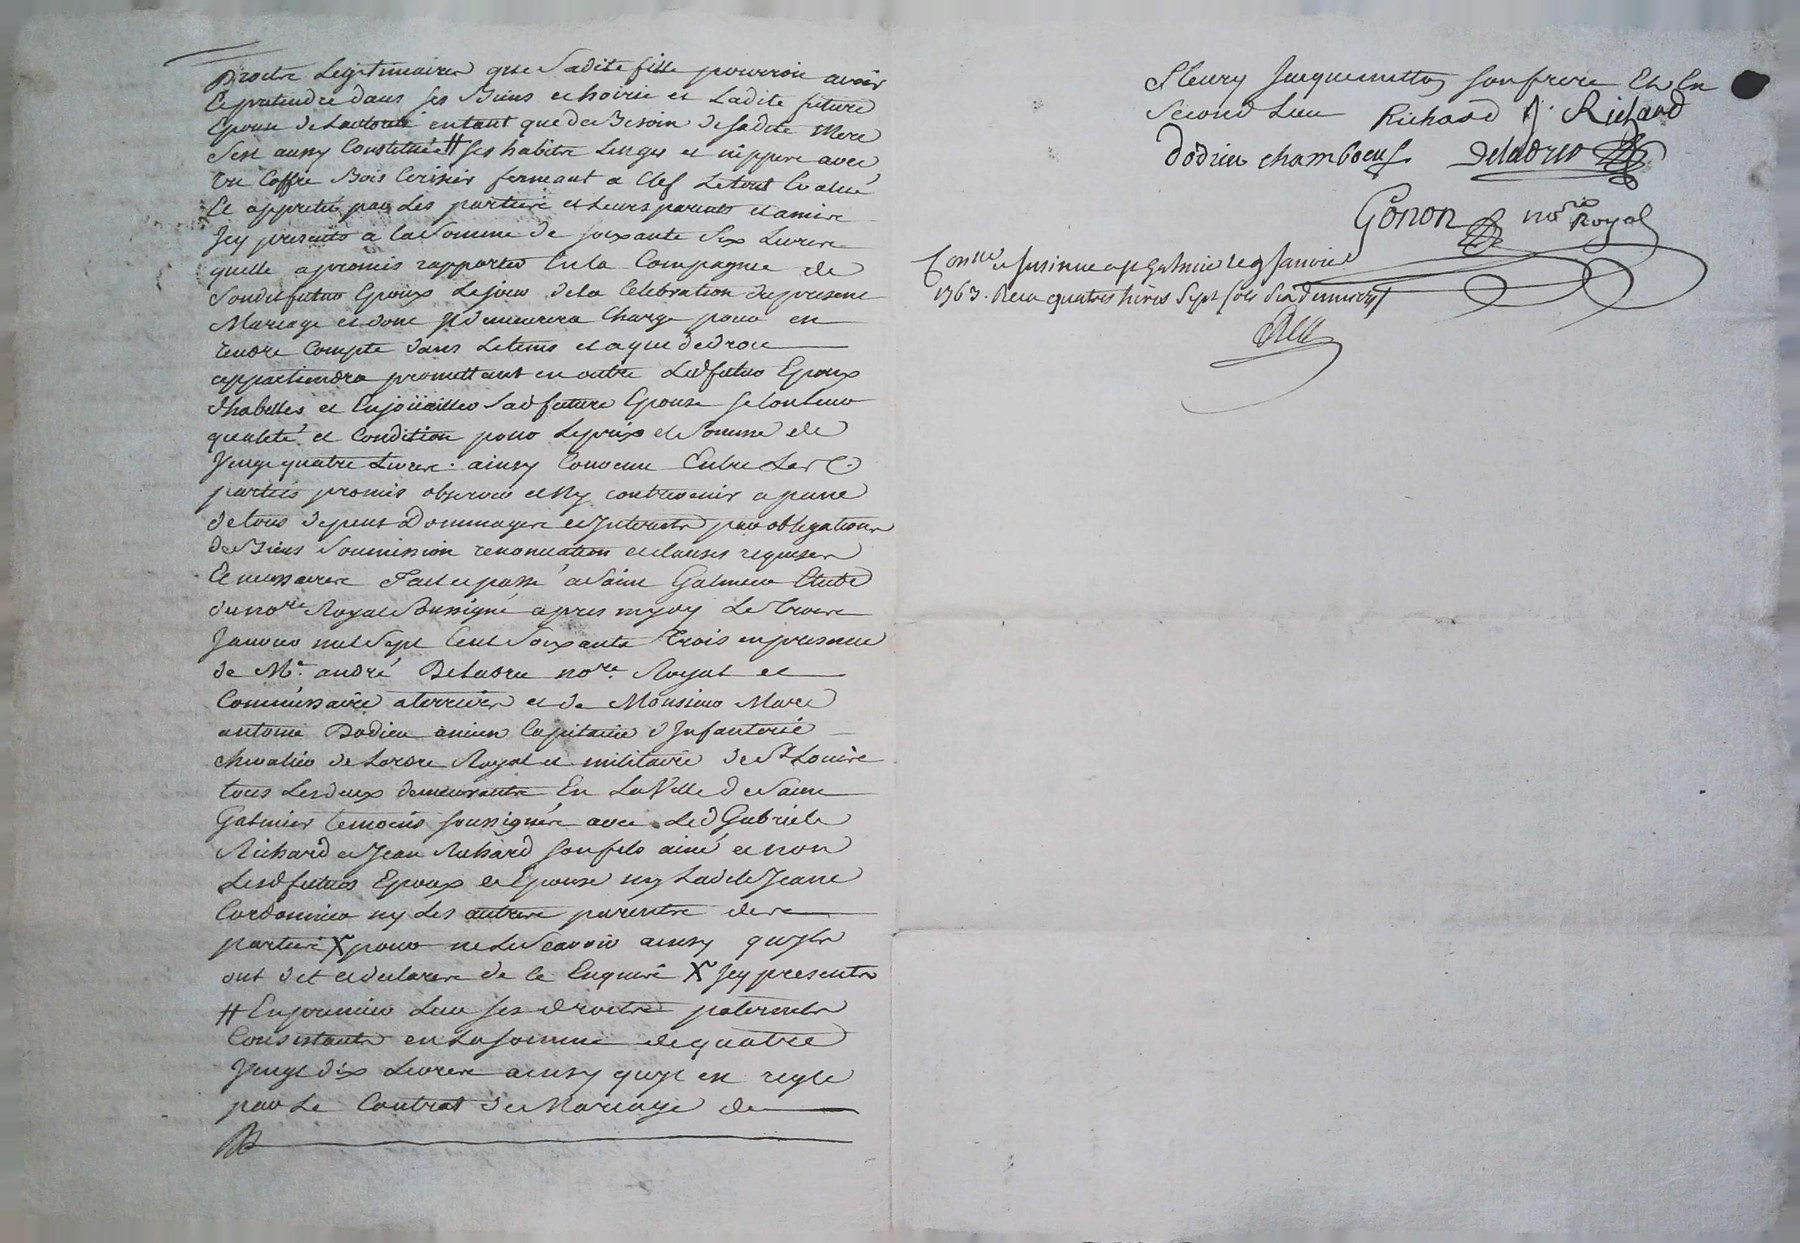 Droits Legitimaires que Sadite fille pourroit avoir
Et pretendre dans ses Biens et hoirie et Ladite future
Epouse de Lautorité entant que de Besoin de Sadite Mere
Sest aussy Constituée # ses habits Linges et nippes avec
un Coffre Bois Cerisier fermant a Clef Le tout Evalué
Et apprecié par Les parties et Leurs parents et amis
Icy presents a La Somme de soixante Six Livres
quelle a promis rapporter En la Compagnie de
Sondit futur Epoux Le jour de la Celebration du present
Mariage et dont Il demeurera Chargé pour en
rendre Compte dans Le tems et a qui de droit
appartiendra promettant en outre Ledt futur Epoux
dhabiller et Enjoüailler Sad future Epouse Selon Leur
qualité et Condition pour Le prix et Somme de
Vingt quatre Livres. ainsy Convenu Entre Les
parties promis observer et N'y contrevenir a peine
de tous depens Dommages et Interests par obligations
de Biens Soumission renonciation et clauses requises
Et necessaires Fait et passé a Saint Galmier Etude
du nore Royal Soussigné apres midy Le Troise
Janvier mil Sept Cent Soixante Trois en presence
de Me. andré Deladru nore. Royal et
Commissaire a terriers et de Monsieur Marc
antoine Dodieu ancien Capitaine d'Infanterie
chevalier de Lordre Royal et militaire de St Louis
tous Les deux demeurants En La Ville de Saint
Galmier temoins soussignés avec Led Gabriel
Richard et Jean Richard son fils ainé et non
Lesd futurs Epoux et Epouse ny Ladite Jeanne
Cordonnier ny Les autres parents des
parties X pour ne Le Scavoir ainsy quils
ont dit et declaré de ce Enquis X Icy presents
# En premier Lieu ses droits paternels
Consistants en La somme de quatre
Vingt dix Livres ainsy quil est reglé
par Le Contrat de Mariage de
Fleury Jacquemetton son frere Et En
Second Lieu Richard J. Richard
Dodieu chamboeuf Deladru
Gonon nore Royal
Conllé et Insinué a St Galmier le 9 Janvier
1763. Recu quatres livres Sept sols Six deniers